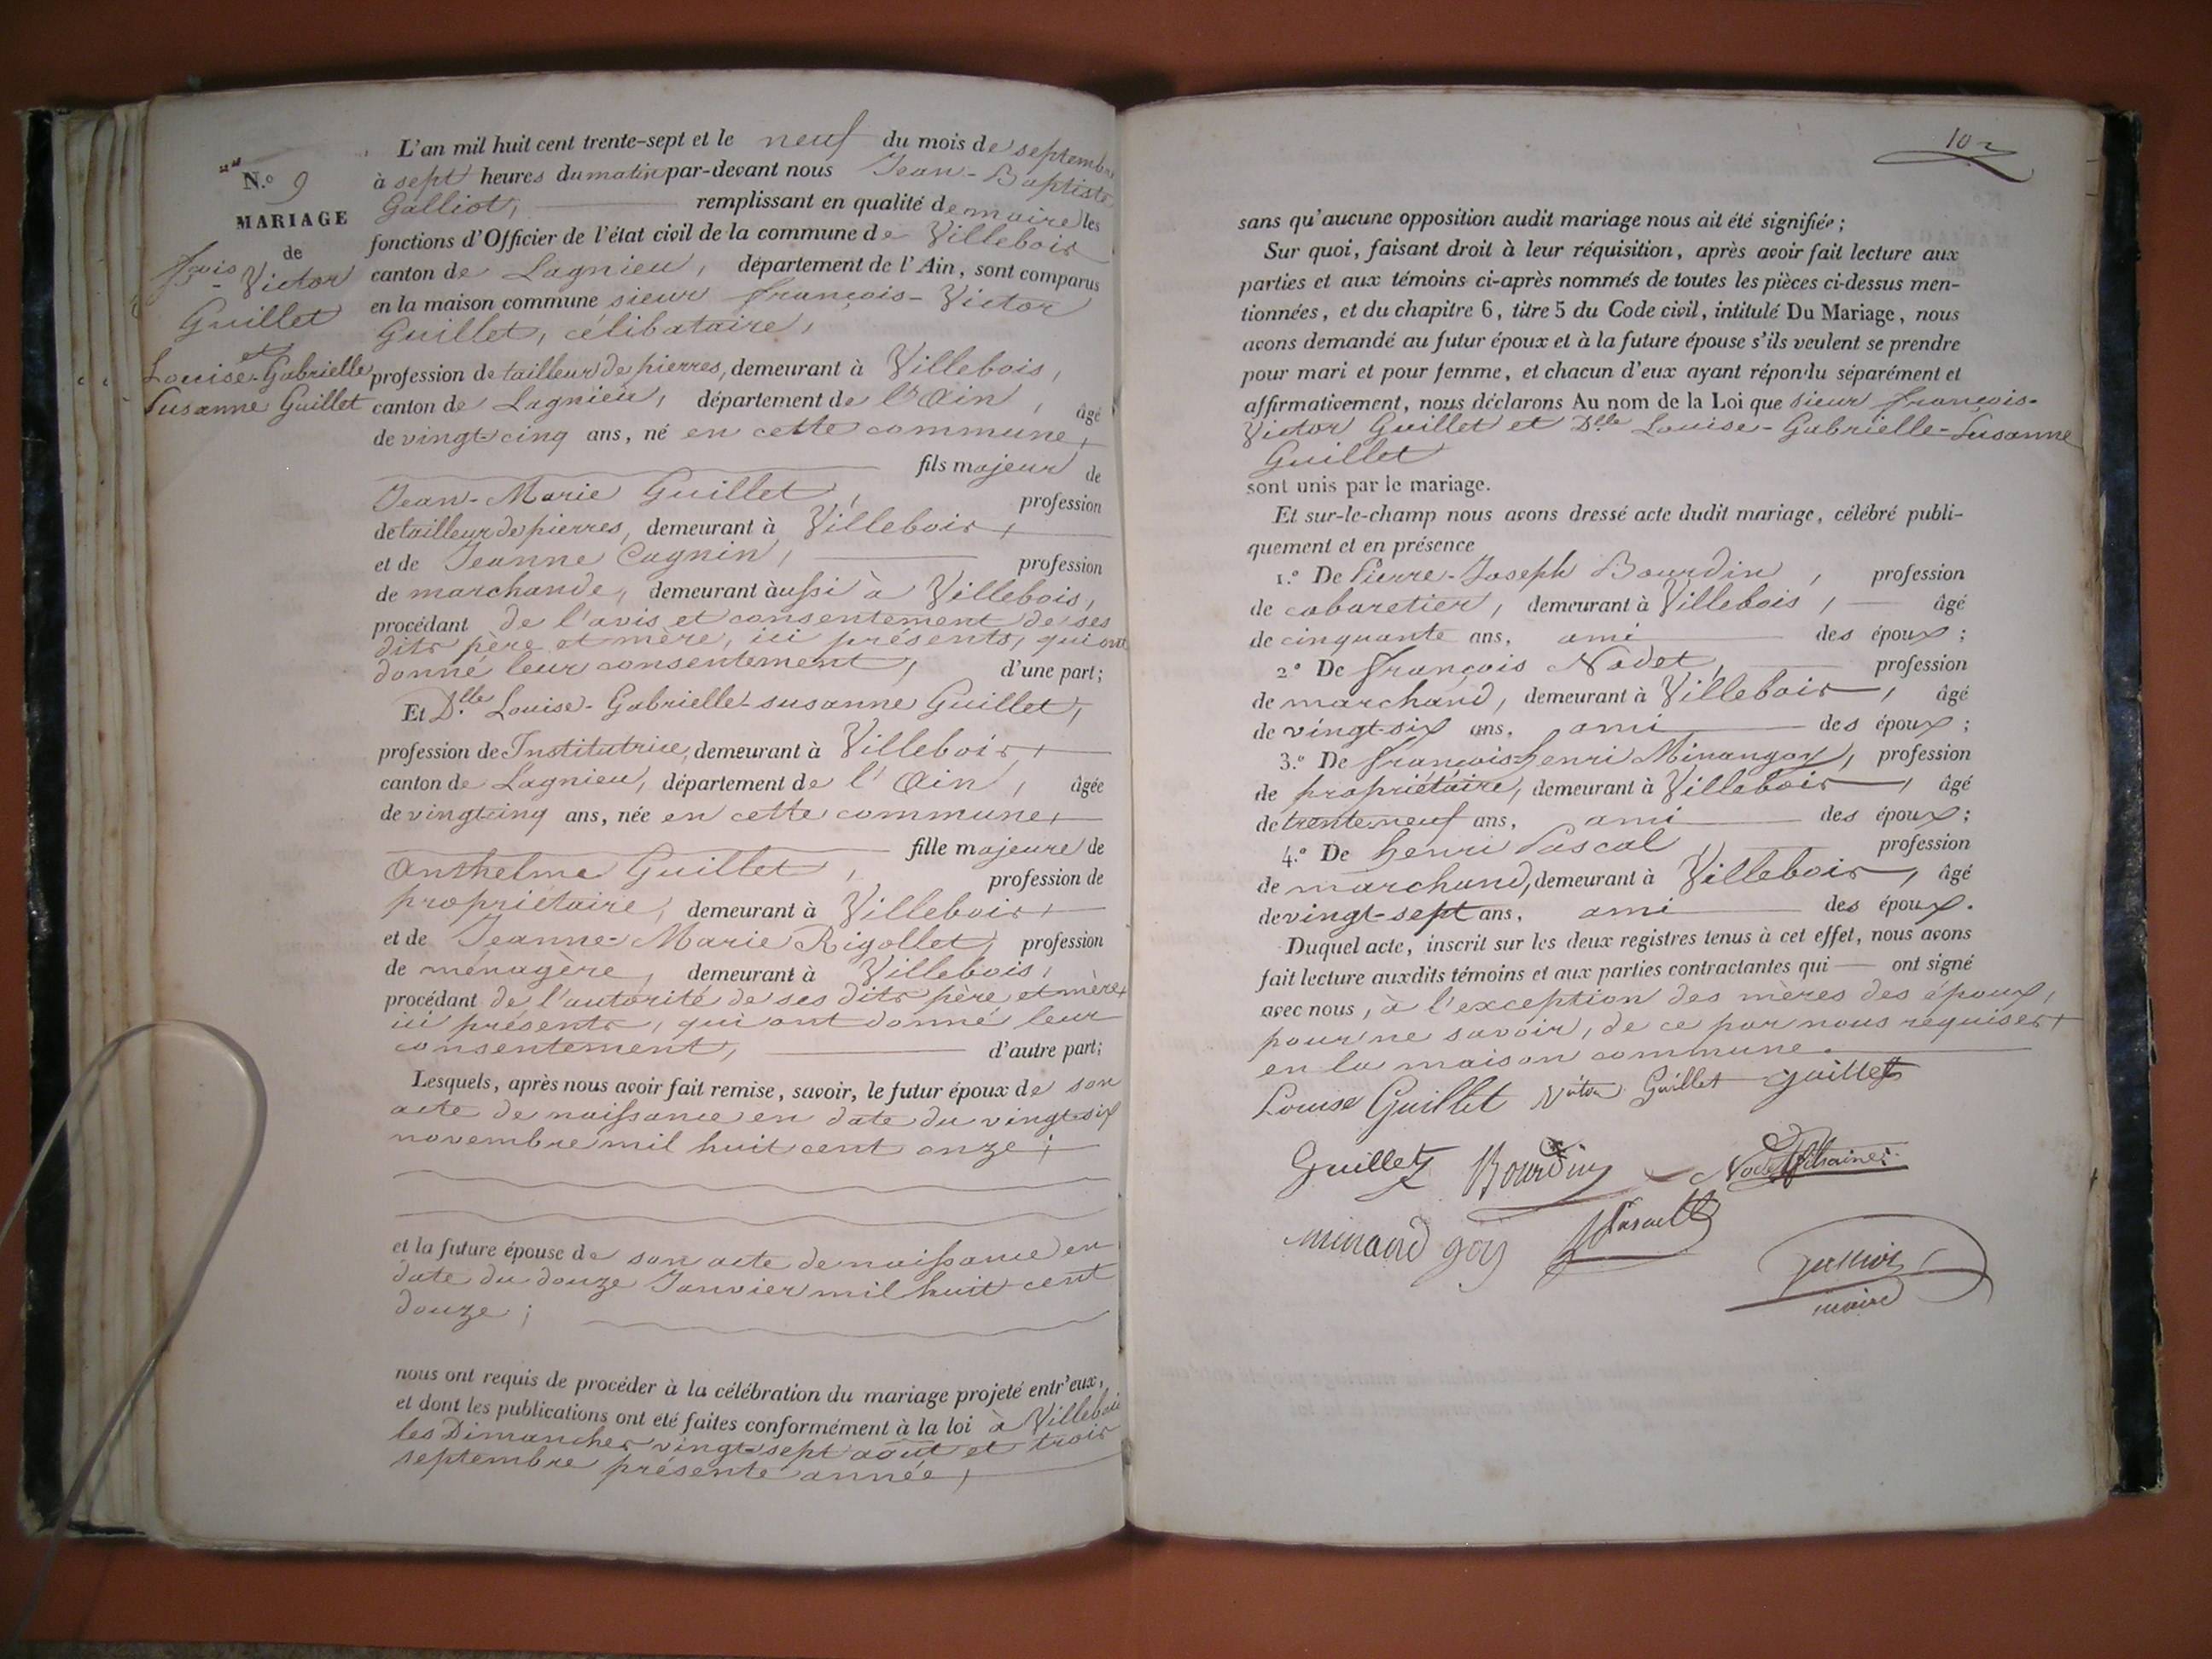 N.o 9
MARIAGE
de
fçois Victor
Guillet
et
Louise-Gabrielle
Susanne Guillet
L'an mil huit cent trente-sept et le neuf du mois de septembre
à sept heures du matin par-devant nous Jean-Baptiste
Galliot, remplissant en qualité de maire les
fonctions d'Officier de l'état civil de la commune de Villebois
canton de Lagnieu, département de l'Ain, sont comparus
en la maison commune sieur françois-Victor
Guillet, célibataire,
profession de tailleur de pierres, demeurant à Villebois,
canton de Lagnieu, département de l'Ain, âgé
de vingt-cinq ans, né en cette commune,
fils majeur de
Jean-Marie Guillet, profession
de tailleur de pierres, demeurant à Villebois,
et de Jeanne Cagnin, profession
de marchande, demeurant aussi à Villebois,
procédant de l'avis et consentement de ses
dits père et mère, ici présents, qui ont
donné leur consentement, d'une part;
Et D.lle Louise-Gabrielle-susanne Guillet,
profession de Institutrice, demeurant à Villebois,
canton de Lagnieu, département de l'Ain, âgée
de vingt cinq ans, née en cette commune,
fille majeure de
Anthelme Guillet, profession de
propriétaire, demeurant à Villebois,
et de Jeanne-Marie Rigollet, profession
de ménagère, demeurant à Villebois,
procédant de l'autorité de ses dits père et mère,
ici présents, qui ont donné leur
consentement, d'autre part;
Lesquels, après nous avoir fait remise, savoir, le futur époux de son
acte de naissance en date du vingt-six
novembre mil huit cent onze;
et la future épouse de son acte de naissance en
date du douze Janvier mil huit cent
douze;
nous ont requis de procéder à la célébration du mariage projeté entr'eux,
et dont les publications ont été faites conformément à la loi à Villebois
les Dimanches vingt-sept août et trois
septembre présente année,
102
sans qu'aucune opposition audit mariage nous ait été signifiée;
Sur quoi, faisant droit à leur réquisition, après avoir fait lecture aux
parties et aux témoins ci-après nommés de toutes les pièces ci-dessus men-
tionnées, et du chapitre 6, titre 5 du Code civil, intitulé Du Mariage, nous
avons demandé au futur époux et à la future épouse s'ils veulent se prendre
pour mari et pour femme, et chacun d'eux ayant répondu séparément et
affirmativement, nous déclarons Au nom de la Loi que sieur françois-
Victor Guillet et D.lle Louise-Gabrielle-Susanne
Guillet
sont unis par le mariage.
Et sur-le-champ nous avons dressé acte dudit mariage, célébré publi-
quement et en présence
1.o De Pierre-Joseph Bourdin, profession
de cabaretier, demeurant à Villebois, âgé
de cinquante ans, ami des époux;
2.o De françois Nodet, profession
de marchand, demeurant à Villebois, âgé
de vingt-six ans, ami des époux;
3.o De françois-henri Minangoy, profession
de propriétaire, demeurant à Villebois, âgé
de trente neuf ans, ami des époux;
4.o De henri Pascal, profession
de marchand, demeurant à Villebois, âgé
de vingt-sept ans, ami des époux.
Duquel acte, inscrit sur les deux registres tenus à cet effet, nous avons
fait lecture auxdits témoins et aux parties contractantes qui ont signé
avec nous, à l'exception des mères des époux,
pour ne savoir, de ce par nous requises,
en la maison commune.
Louise Guillet Victor Guillet Guillet
Guillet Bourdin Nodet
minand goy Pascal
Galliot
maire